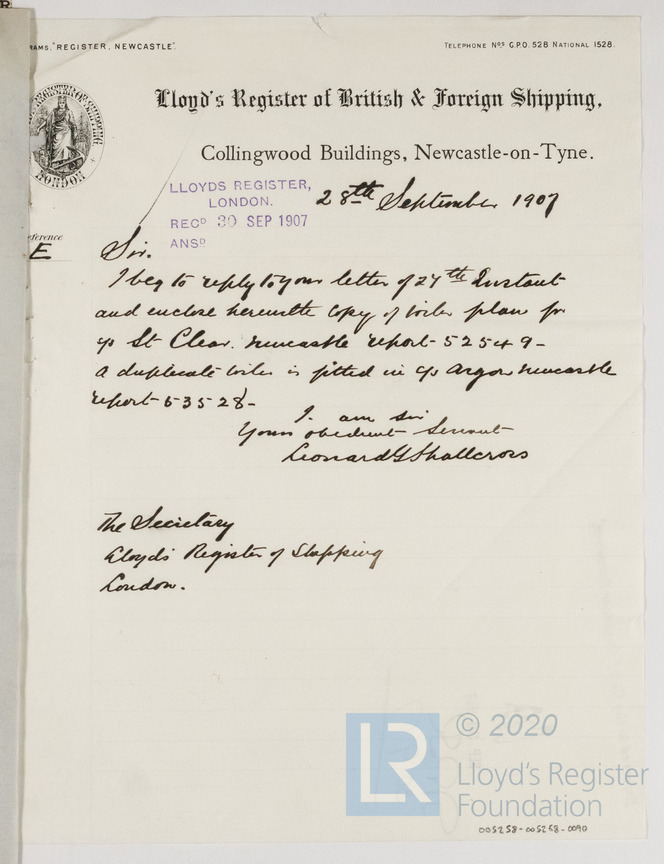 R
RAMS, "REGISTER, NEWCASTLE".
TELEPHONE Nos G.P.O. 528 NATIONAL 1528.
Lloyd's Register of British & Foreign Shipping,
Collingwood Buildings, Newcastle-on-Tyne.
REGISTER OF SHIPPING
LONDON
LLOYDS REGISTER,
LONDON.
RECD 30 SEP 1907
ANSD
28th September 1907
ference
E
Sir.
I beg to reply to your letter of 27th Instant
and enclose herewith copy of boiler plan for
St Clear. Newcastle report - 52549 -
A duplicate boiler is fitted in Argon Newcastle
report - 53528 -
I am sir
Your obedient Servant
Leonard G Shallcross
The Secretary
Lloyd's Register of Shipping
London.
© 2020
LR
Lloyd's Register
Foundation
005258-005258-0090